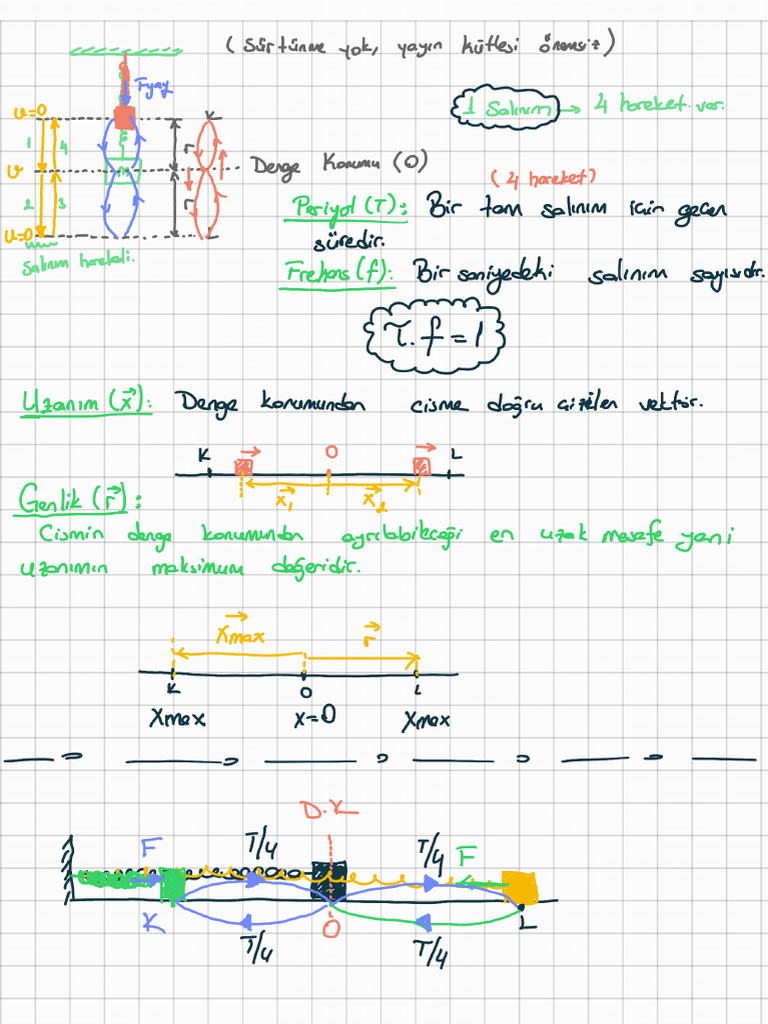 (Sürtünme yok, yayın kütlesi önemsiz)
Fyay
1 Salınım → 4 hareket var.
v=0
K
1
4
r
v
m
Denge Konumu (O)
2
3
r
v=0
L
Salınım hareketi.
(4 hareket)
Periyot (T): Bir tam salınım için geçen
süredir.
Frekans (f): Bir saniyedeki salınım sayısıdır.
T.f=1
Uzanım (x): Denge konumundan cisme doğru çizilen vektör.
K O L
x₁ x₂
Genlik (r):
Cismin denge konumundan ayrılabileceği en uzak mesafe yani
uzanımın maksimum değeridir.
Xmax r
K O L
Xmax x=0 Xmax
D.K
F T/4 T/4 F
K O L
T/4 T/4